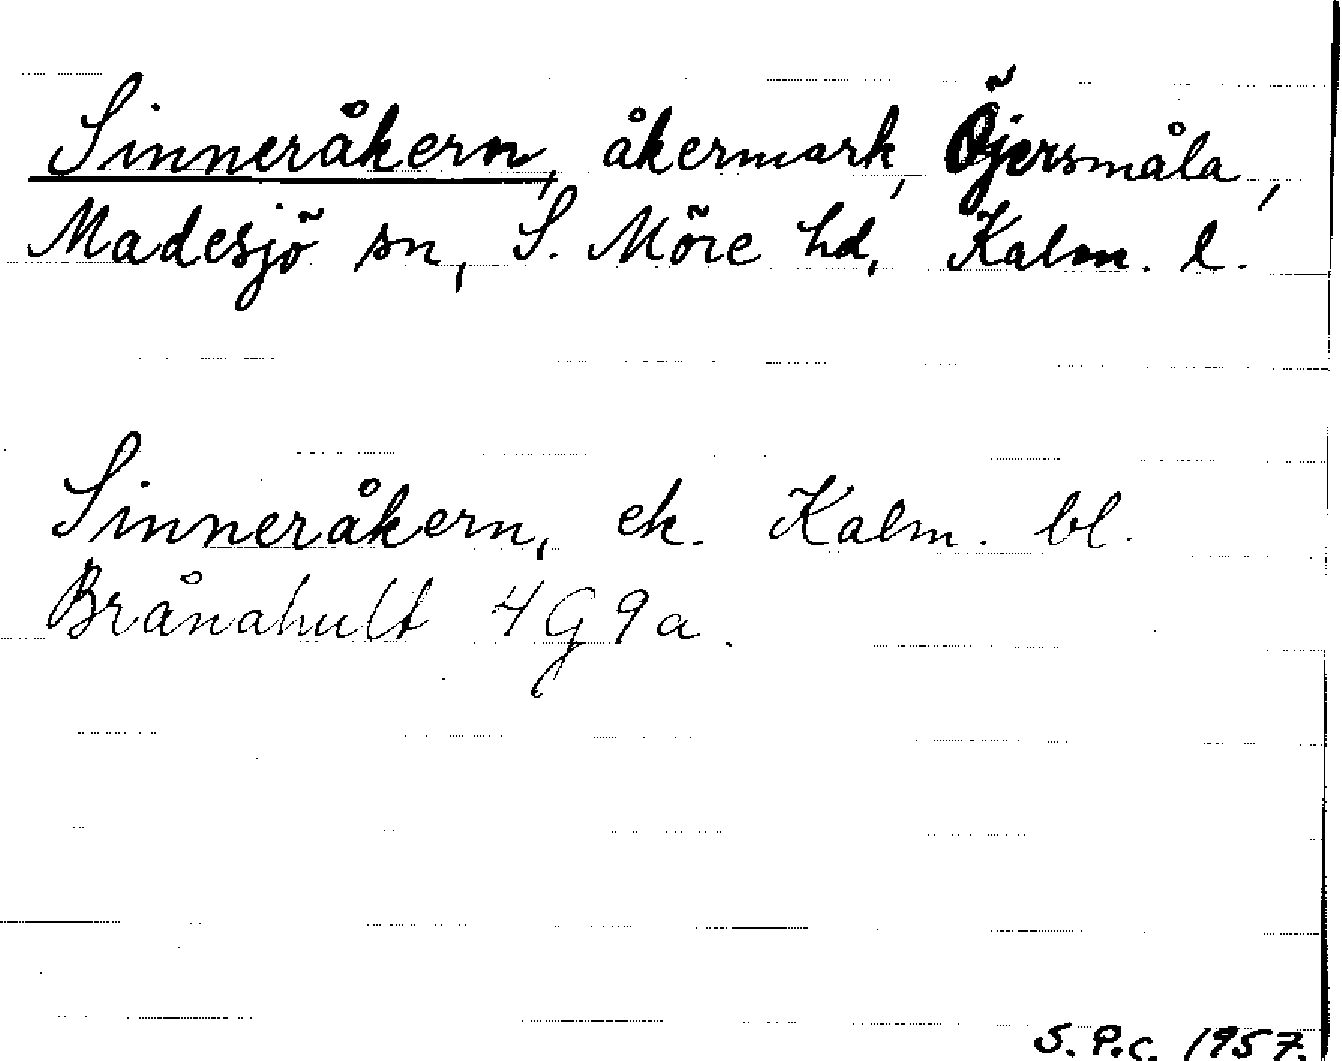 Sinneråkern, åkermark, Öjersmåla,
Madesjö sn, S. Möre hd, Kalm. l.
Sinneråkern, ek. Kalm. bl.
Brånahult 4G9a.
S. P.c. 1957.